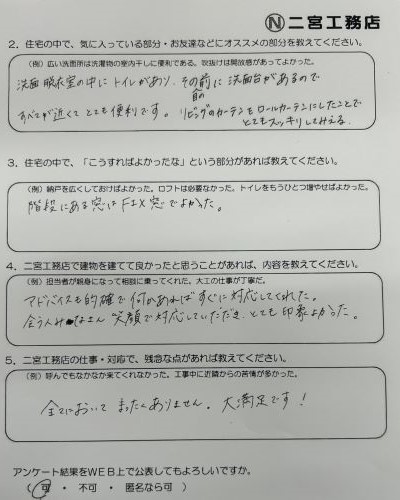 Ⓝ 二宮工務店
2．住宅の中で、気に入っている部分・お友達などにオススメの部分を教えてください。
（例）広い洗面所は洗濯物の室内干しに便利である。吹抜けは開放感があってよかった。
洗面脱衣室の中にトイレがあり、その前に洗面台があるので
すべてが近くてとても便利です。リビングのカーテンをロールカーテンにしたことで
とてもスッキリしてみえる。
3．住宅の中で、「こうすればよかったな」という部分があれば教えてください。
（例）納戸を広くしておけばよかった。ロフトは必要なかった。トイレをもうひとつ増やせばよかった。
階段にある窓はFIX窓でよかった。
4．二宮工務店で建物を建てて良かったと思うことがあれば、内容を教えてください。
（例）担当者が親身になって相談に乗ってくれた、大工の仕事が丁寧だ。
アドバイスも的確で何かあればすぐに対応してくれた。
会う人みなさん笑顔で対応していただき、とても印象よかった。
5．二宮工務店の仕事・対応で、残念な点があれば教えてください。
（例）呼んでもなかなか来てくれなかった。工事中に近隣からの苦情が多かった。
全てにおいてまったくありません。大満足です！
アンケート結果をWEB上で公表してもよろしいですか。
（ 可 ・ 不可 ・ 匿名なら可 ）